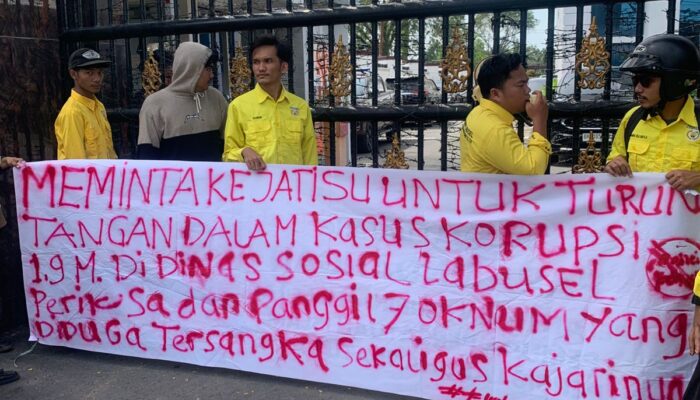 MEMINTA KEJATISU UNTUK TURUN
TANGAN DALAM KASUS KORUPSI
1,9 M. Di DiNAS SOSIAL LABUSEL
PeriKSa dan Panggil 7 OKNUM Yang
DiDUGa TerSangKa SeKaliguS KaJari